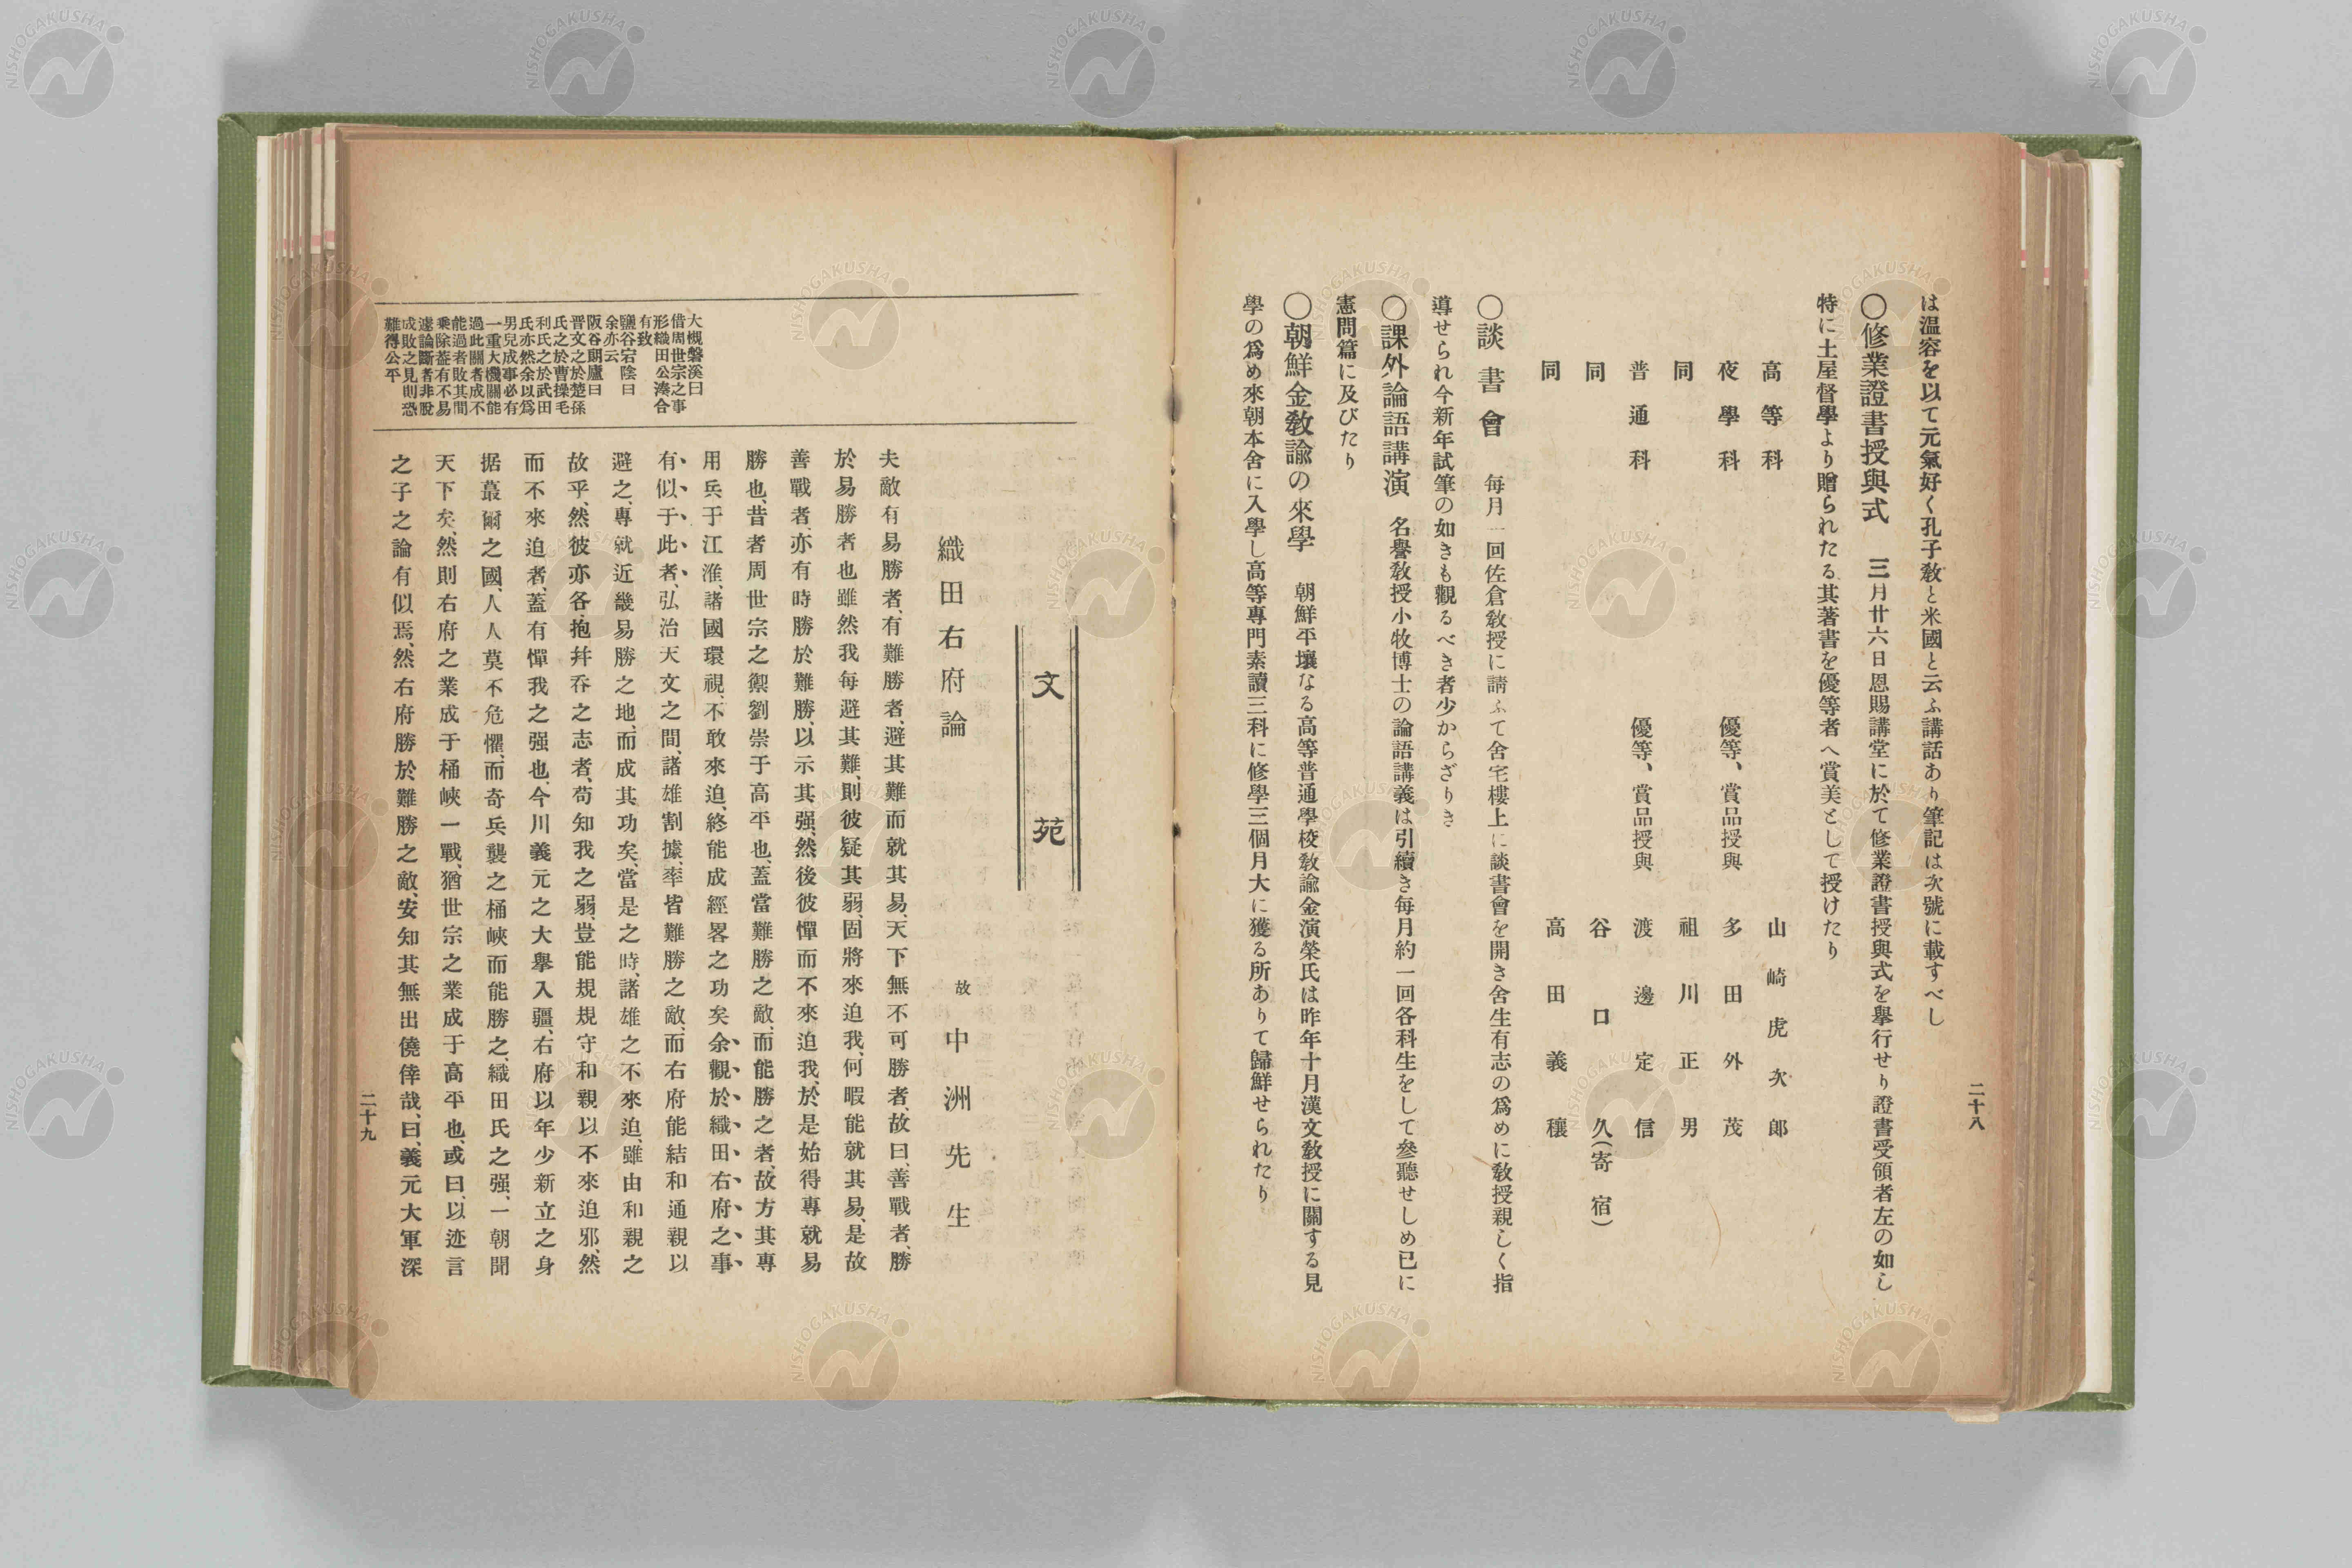 二十八
は温容を以て元氣好く孔子敎と米國と云ふ講話あり筆記は次號に載すべし
〇修業證書授與式 三月廿六日恩賜講堂に於て修業證書授與式を擧行せり證書受領者左の如し
特に土屋督學より贈られたる其著書を優等者へ賞美として授けたり
高等科 山崎虎次郎
夜學科 優等、賞品授與 多田外茂
同 祖川正男
普通科 優等、賞品授與 渡邊定信
同 谷口久(寄宿)
同 高田義穰
〇談書會 每月一回佐倉敎授に請ふて舍宅樓上に談書會を開き舍生有志の爲めに敎授親しく指
導せられ今新年試筆の如きも觀るべき者少からざりき
〇課外論語講演 名譽敎授小牧博士の論語講義は引續き每月約一回各科生をして參聽せしめ已に
憲問篇に及びたり
〇朝鮮金敎諭の來學 朝鮮平壤なる高等普通學校敎諭金演榮氏は昨年十月漢文敎授に關する見
學の爲め來朝本舍に入學し高等專門素讀三科に修學三個月大に獲る所ありて歸鮮せられたり
文苑
織田右府論 故 中洲先生
夫敵有易勝者、有難勝者、避其難而就其易、天下無不可勝者、故曰、善戰者、勝
於易勝者也雖然我每避其難、則彼疑其弱、固將來迫我、何暇能就其易、是故
善戰者、亦有時勝於難勝、以示其强、然後彼憚而不來迫我、於是始得專就易
勝也、昔者周世宗之禦劉崇于高平也、蓋當難勝之敵、而能勝之者、故方其專
用兵于江淮、諸國環視、不敢來迫、終能成經畧之功矣余觀於織田右府之事
有似于此者、弘治天文之間、諸雄割據、率皆難勝之敵、而右府能結和通親以
避之、專就近畿易勝之地、而成其功矣、當是之時、諸雄之不來迫、雖由和親之
故乎、然彼亦各抱幷呑之志者、苟知我之弱、豈能規規守和親以不來迫邪、然
而不來迫者、蓋有憚我之强也、今川義元之大擧入疆、右府以年少新立之身
据蕞爾之國、人人莫不危懼、而奇兵襲之桶峽而能勝之、織田氏之强、一朝聞
天下矣、然則右府之業成于桶峽一戰、猶世宗之業成于高平也、或曰、以迹言
之子之論有似焉、然右府勝於難勝之敵、安知其無出僥倖哉、曰、義元大軍深
大槻磐溪曰
借周世宗之事
形織田公湊合
有致
鹽谷宕陰曰
余亦云
阪谷朗廬曰
晋文之於楚孫
氏之於曹操毛
利氏之於武田
氏亦然余以爲
男兒成事必有
一重大機關能
過此關者成不
能過者敗其間
乘除蓋有不易
遽論斷者非脫
成敗之見則恐
難得公平
二十九